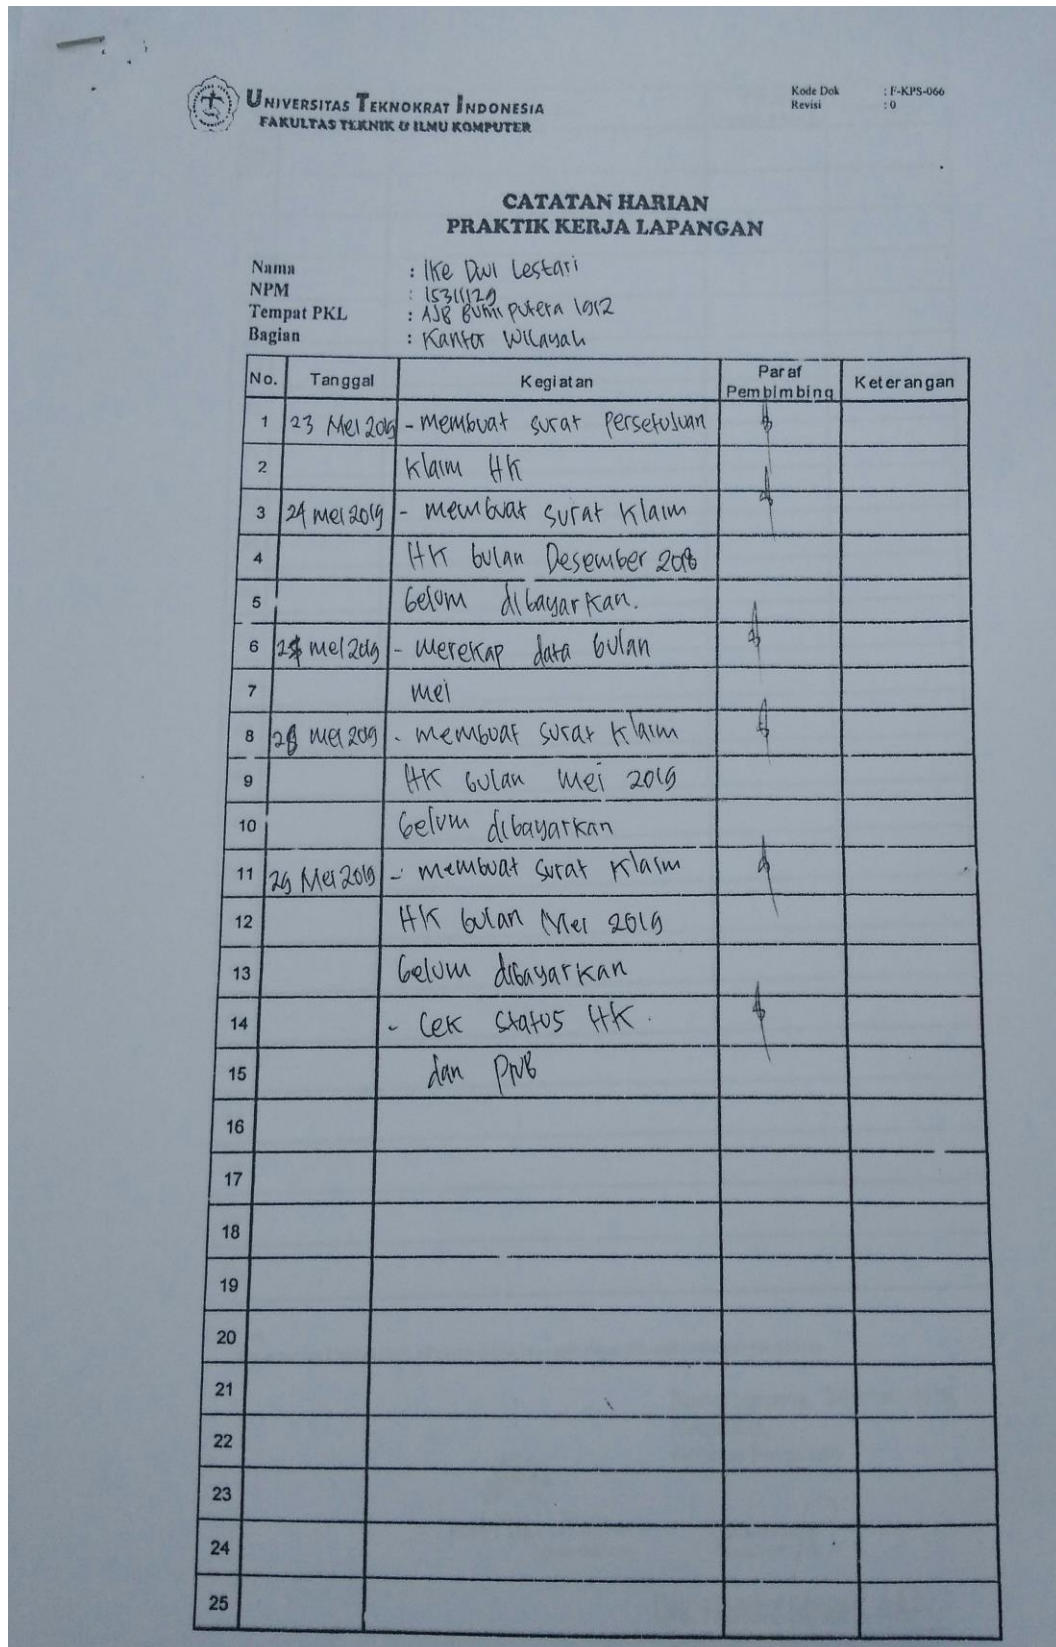 UNIVERSITAS TEKNOKRAT INDONESIA
FAKULTAS TEKNIK & ILMU KOMPUTER
Kode Dok : F-KPS-066
Revisi : 0
CATATAN HARIAN
PRAKTIK KERJA LAPANGAN
Nama : Ike Dwi Lestari
NPM : 15311129
Tempat PKL : AJB Bumi putera 1912
Bagian : Kantor Wilayah
No. Tanggal Kegiatan Paraf Pembimbing Keterangan
1 23 Mei 2019 - membuat surat Persetujuan
2 Klaim HK
3 24 mei 2019 - membuat surat Klaim
4 HK bulan Desember 2018
5 belum dibayarkan.
6 mei 2019 - merekap data bulan
7 mei
8 28 mei 2019 - membuat surat Klaim
9 HK bulan mei 2019
10 belum dibayarkan
11 29 Mei 2019 - membuat surat Klaim
12 HK bulan Mei 2019
13 belum dibayarkan
14 - Cek status HK.
15 dan
16
17
18
19
20
21
22
23
24
25